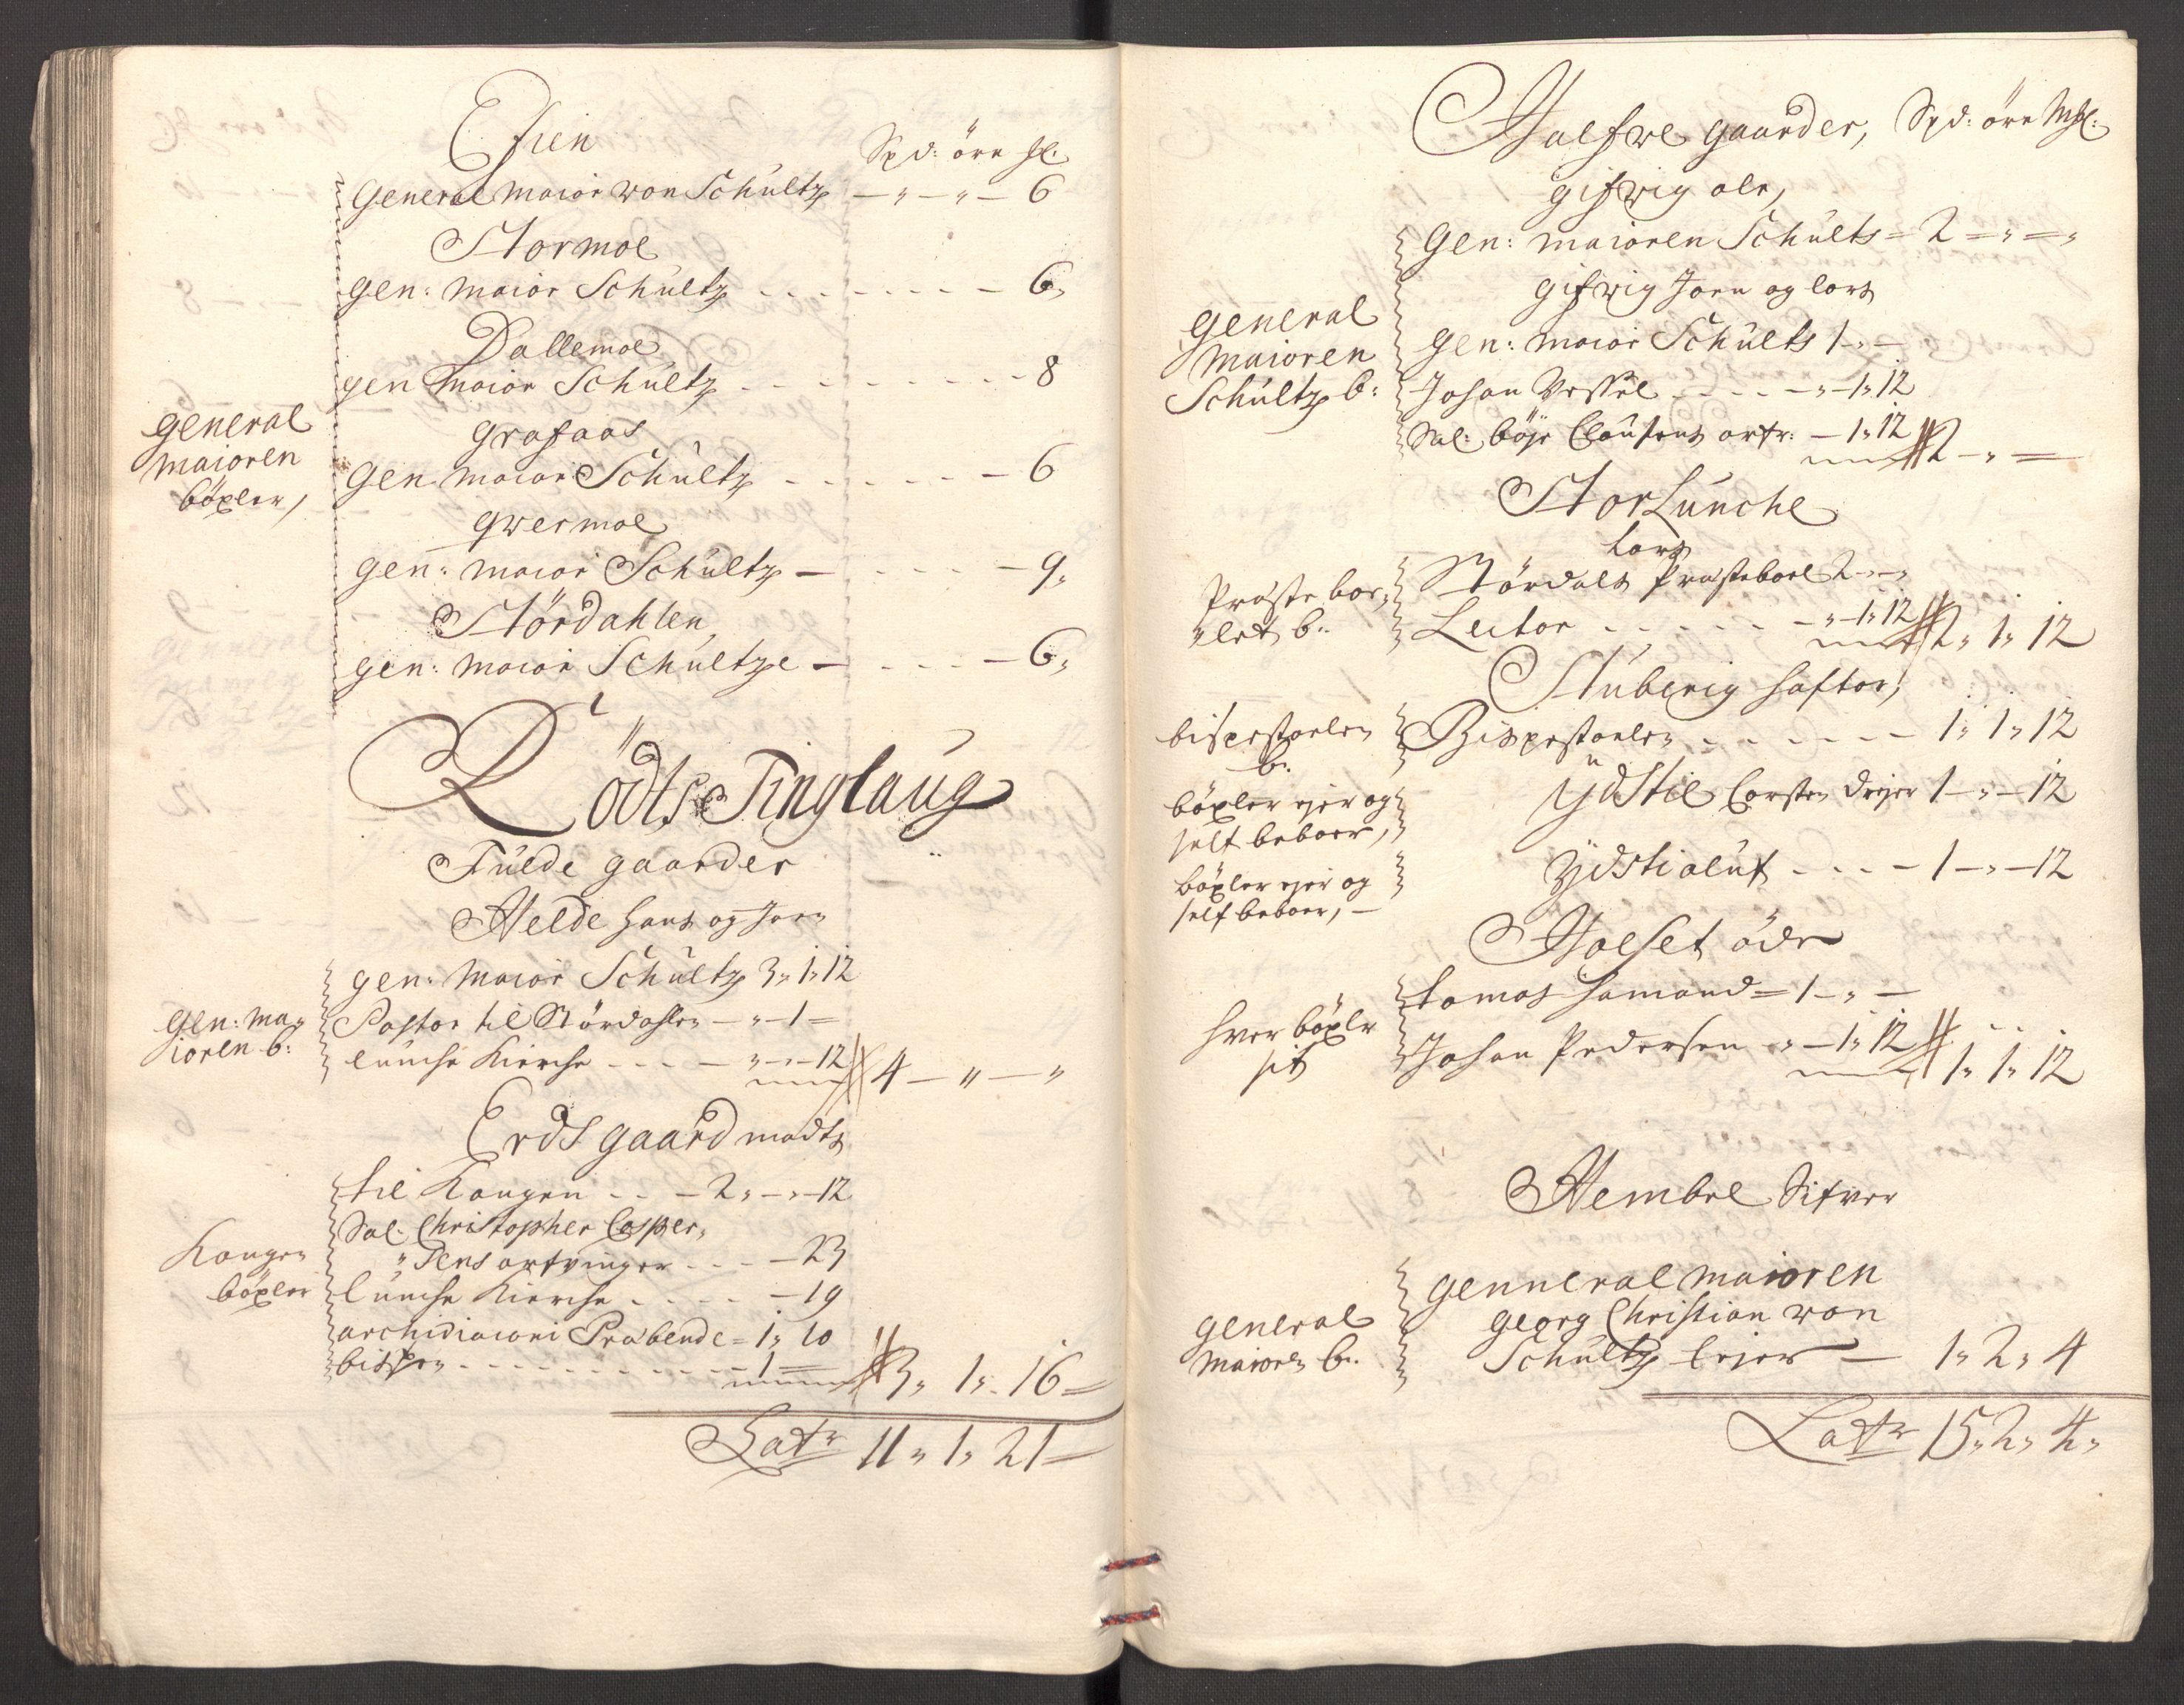 Eſien
Spd: öre Ml:
General maior von Schultz — „ — „ — 6
Stormoe
gen: maior Schultz - - - - - - - 6„
Dallemoe
gen maior Schultz - - - - - - - - 8
general
maioren
böxler,
Grafaas
Gen maior Schultz - - - - - - 6
Qvermoe
gen: maior Schultz — - - - - 9„
Stördahlen
gen: maior Schultze — - - - - 6„
Rödts Tinglaug
Fulde gaarder
Helde Hans og Joen
gen: maior Schultz 3„ 1„ 12
Gen: ma„
ioren b:
Pastor til Stördahlen — „ — 1 =
lunche Kirche - - - — „ — „ — 12 4 — „ — „
Erdsgaard madts
til Kongen - - — 2„ — „ — 12
Sal: Christopher Casper„
„sens arfvinger - - - — 23
Kongen
böxler
lunche Kirche - - - - — 19
archidiaconi Præbende = 1„ 10
bispen - - - - - - - - - 1 = 3„ 1„ 16 =
Latr 11„ 1„ 21 =
Halfve gaarder, Spd: öre Ml:
gifvig ole,
Gen: maioren Schults = 2 = „ = „
gifvig Joen og lars
general
maioren
Schultz b:
gen: maior Schults 1 - „ —
Johan Vessel - - - - — „ — 1„ 12
Sal: böje Clausens arfr: — 1„ 12 2 — „ =
Stor Lunche
lars
Præstebor„
„let b:
Stördals Præsteboel 2 — „ — „
Lector - - - - - — „ — 1„ 12 2„ 1„ 12
Stuberig haftor,
bispestoelen
b:
Bispestoelen - - - - - - — 1„ 1„ 12
böxler ejer og
self beboer,
ydstie Corsten Drejer 1 — „ — 12
böxler ejer og
self beboer, —
ydsti oluf - - - — 1 — „ — 12
Holset öde
hver böxler
sit
tomas Hamand = 1 — „ —
Johan Pedersen „ — 1„ 12 1„ 1„ 12
Hembre Sifver
general
maioren b:
genneral maioren
georg Christian von
Schultz Ejer — 1„ 2„ 4
Latr 15„ 2„ 4„